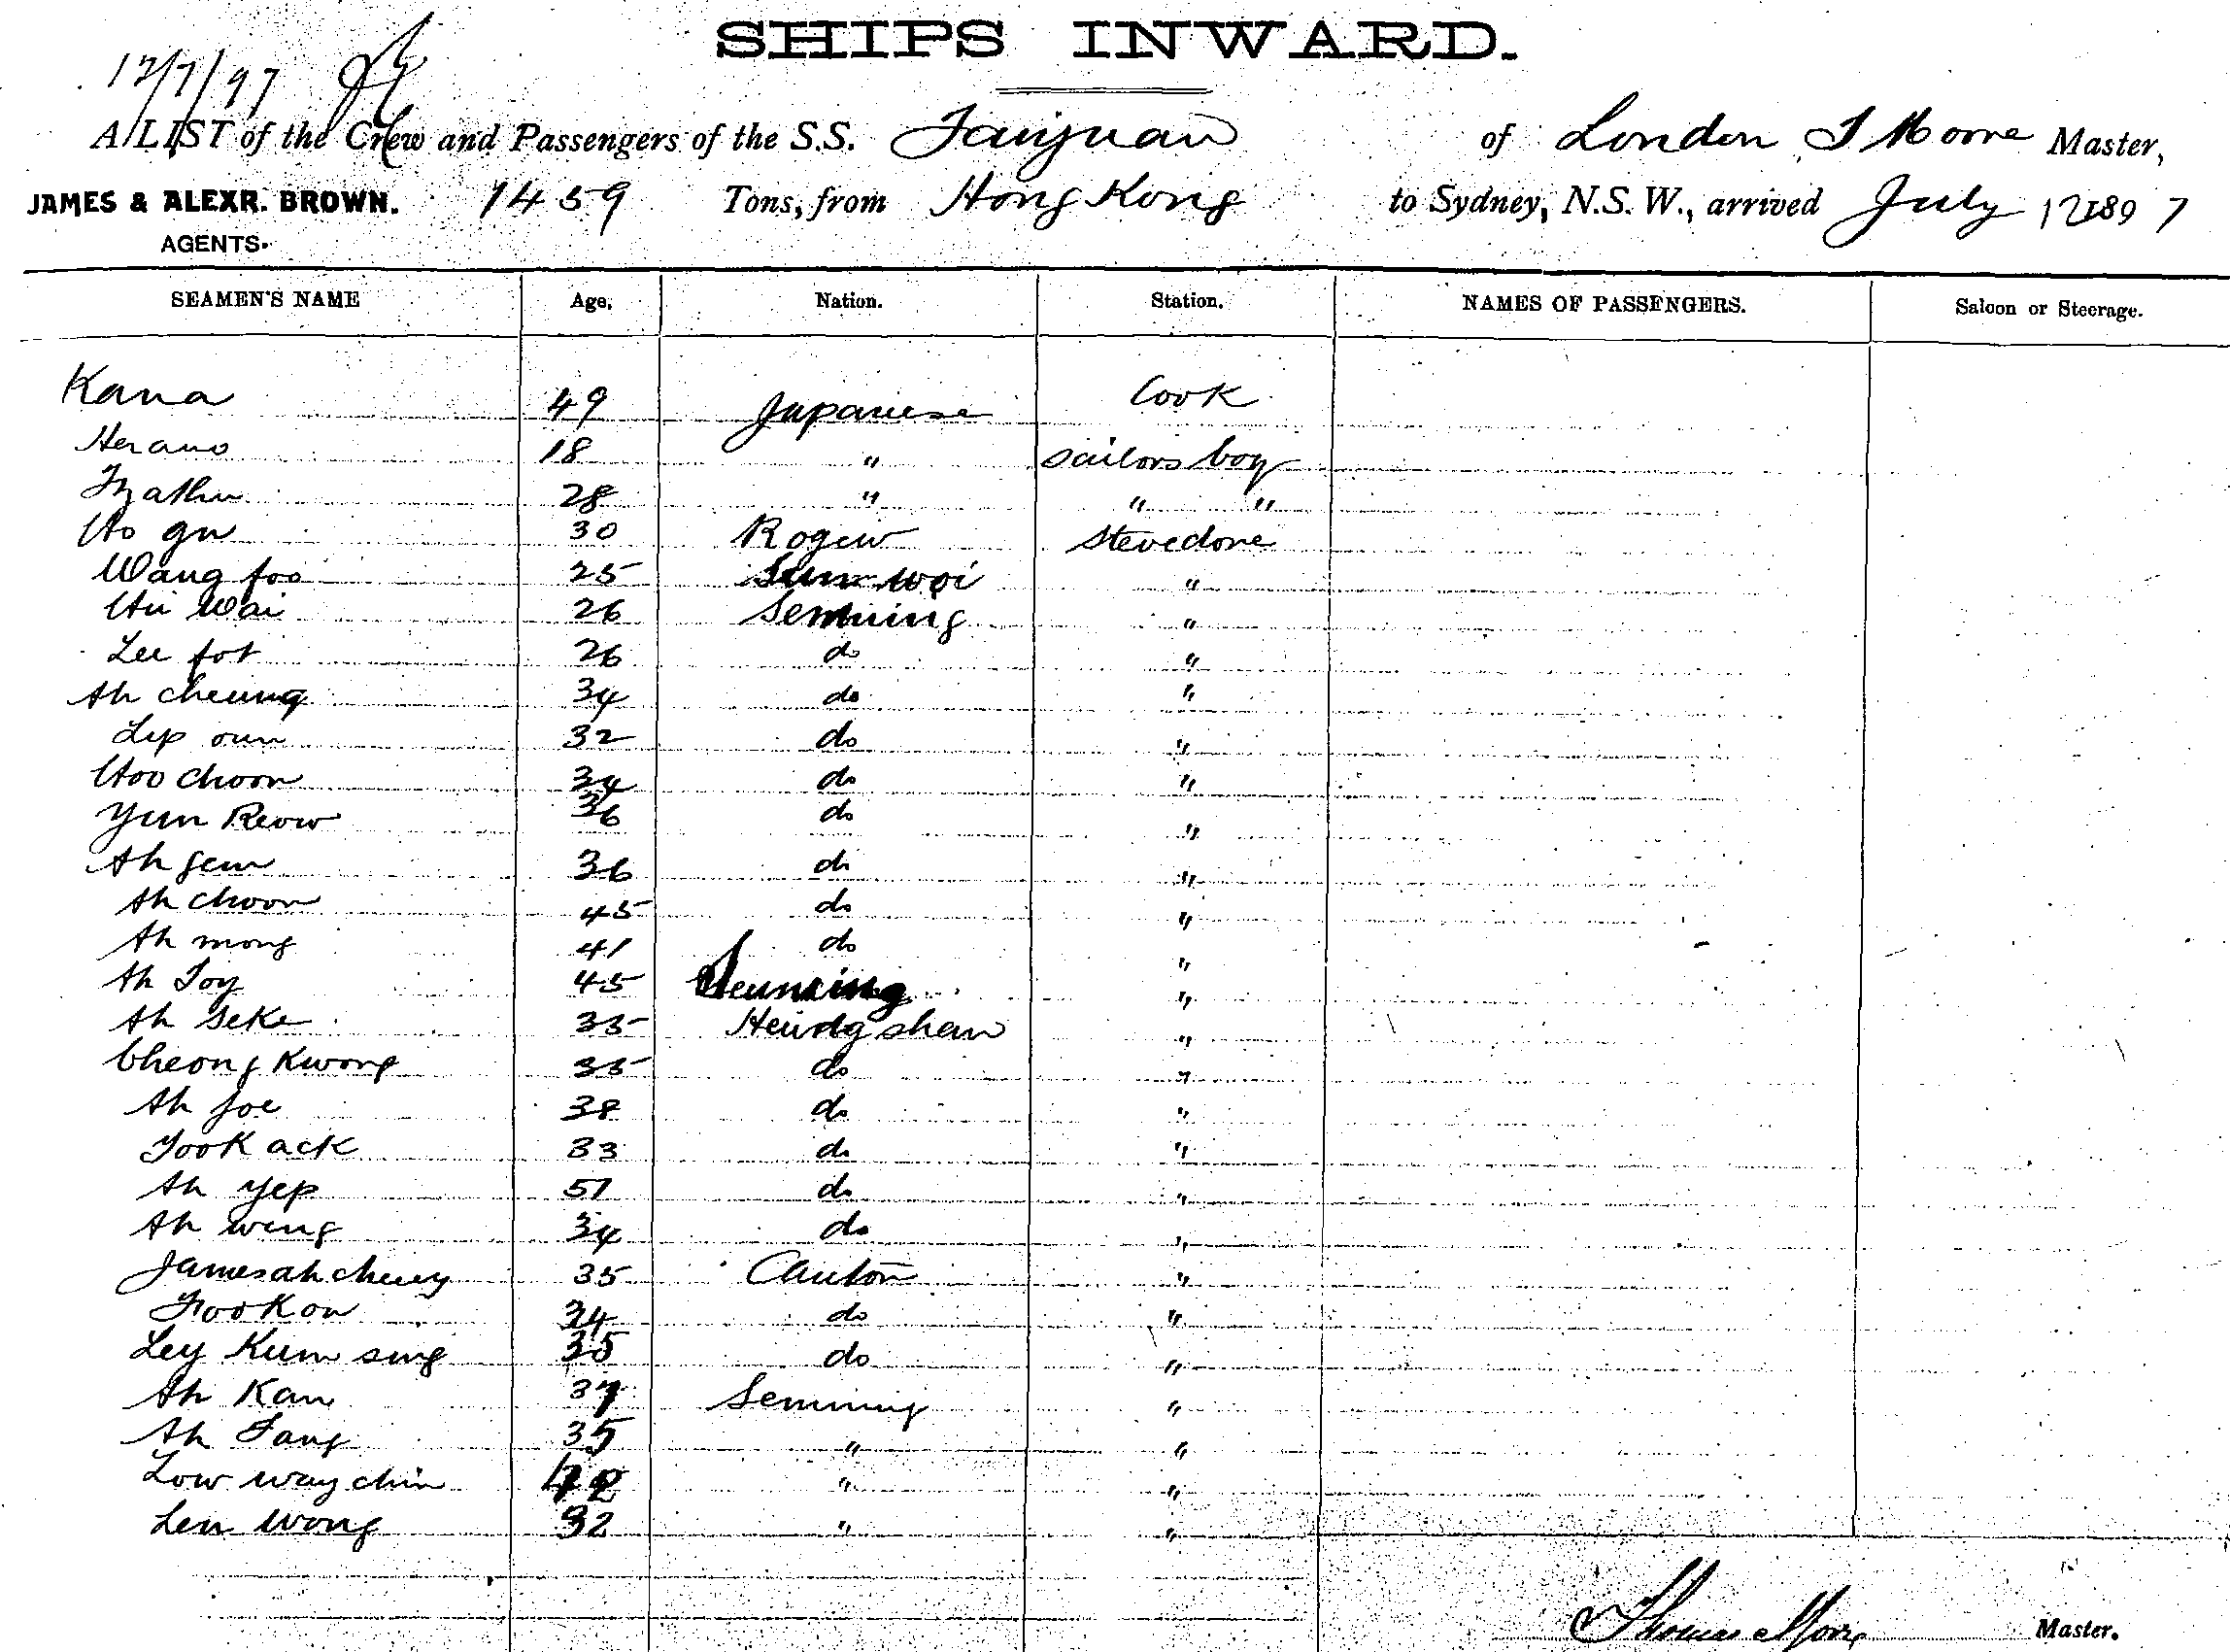 SHIPS INWARD.
12/7/97
A LIST of the Crew and Passengers of the S.S. Taiyuan of London T Moore Master,
JAMES & ALEXR. BROWN. 1459 Tons, from Hong Kong to Sydney, N.S.W., arrived July 12 1897
AGENTS.
SEAMEN'S NAME Age. Nation. Station. NAMES OF PASSENGERS. Saloon or Steerage.
Kana 49 Japanese Cook
Herano 18 " sailors boy
28 " " "
Ho gu 30 stevedore
Wang foo 25 Sun woi "
Hu Wai 26 Senning "
Lee fot 26 do "
Ah cheung 34 do "
Lip oun 32 do "
Hoo choon 34 do "
Yun Reow 36 do "
Ah gem 36 do "
Ah choon 45 do "
Ah mong 41 do "
Ah Toy 45 Sunning "
Ah seke 35 Heung shan "
Cheong Kwong 35 do "
Ah foe 38 do "
Yook ack 33 do "
Ah yep 51 do "
Ah weng 34 do "
James ah cheey 35 Canton "
Fook on 34 do "
Ley Kum sing 35 do "
Ah Kan 37 Senning "
Ah Fang 35 " "
Low way chin 42 " "
Len wong 32 " "
Thomas Moore Master.